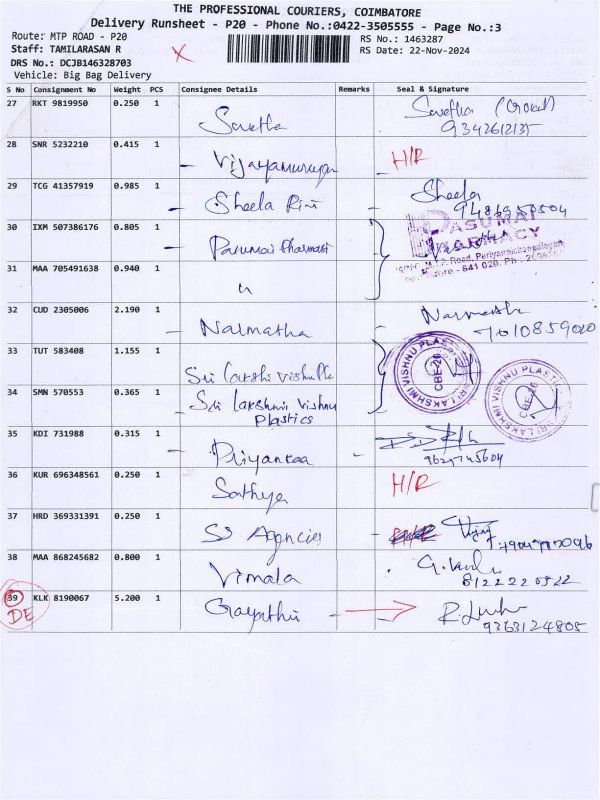 THE PROFESSIONAL COURIERS, COIMBATORE
Delivery Runsheet - P20 - Phone No.:0422-3505555 - Page No.:3
Route: MTP ROAD - P20
RS No.: 1463287
Staff: TAMILARASAN R
RS Date: 22-Nov-2024
DRS No.: DCJB146328703
Vehicle: Big Bag Delivery
S No Consignment No Weight PCS Consignee Details Remarks Seal & Signature
27 RKT 9819950 0.250 1
9342612135
28 SNR 5232210 0.415 1 H/R
29 TCG 41357919 0.985 1 Sheela Sheela
30 IXM 507386176 0.805 1
PASUMAI
PHARMACY
31 MAA 705491638 0.940 1 "
32 CUD 2305006 2.190 1 Narmatha
33 TUT 583408 1.155 1 Sri
SRI LAKSHMI VISHNU PLASTICS CBE-20
34 SMN 570553 0.365 1 Sri lakshmi vishnu
plastics
SRI LAKSHMI VISHNU PLASTICS CBE-20
35 KDI 731988 0.315 1 Priyankaa
36 KUR 696348561 0.250 1 Sathya H/R
37 HRD 369331391 0.250 1 SS Agencies
38 MAA 868245682 0.800 1 Vimala
39 KLK 8190067 5.200 1 Gayathri
DE
9363124805